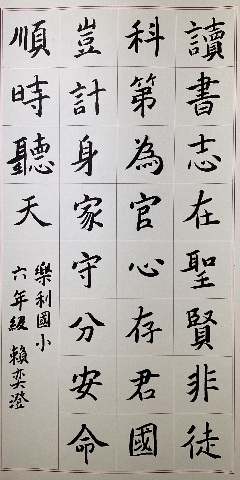 讀書志在聖賢非徒
科第為官心存君國
豈計身家守分安命
順時聽天
樂利國小
六年級 賴奕澄